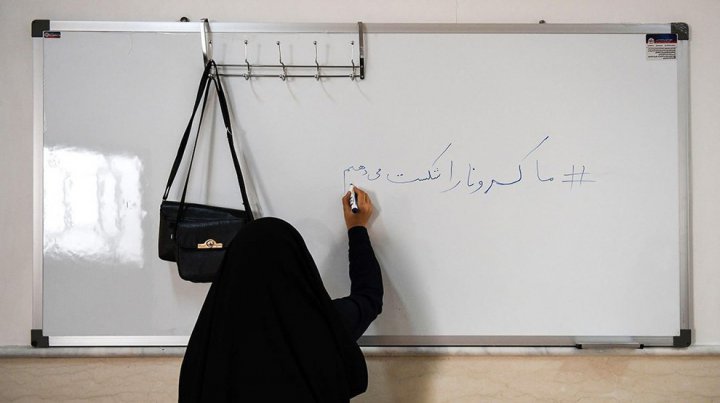 # ما کرونا را شکست می‌دهیم